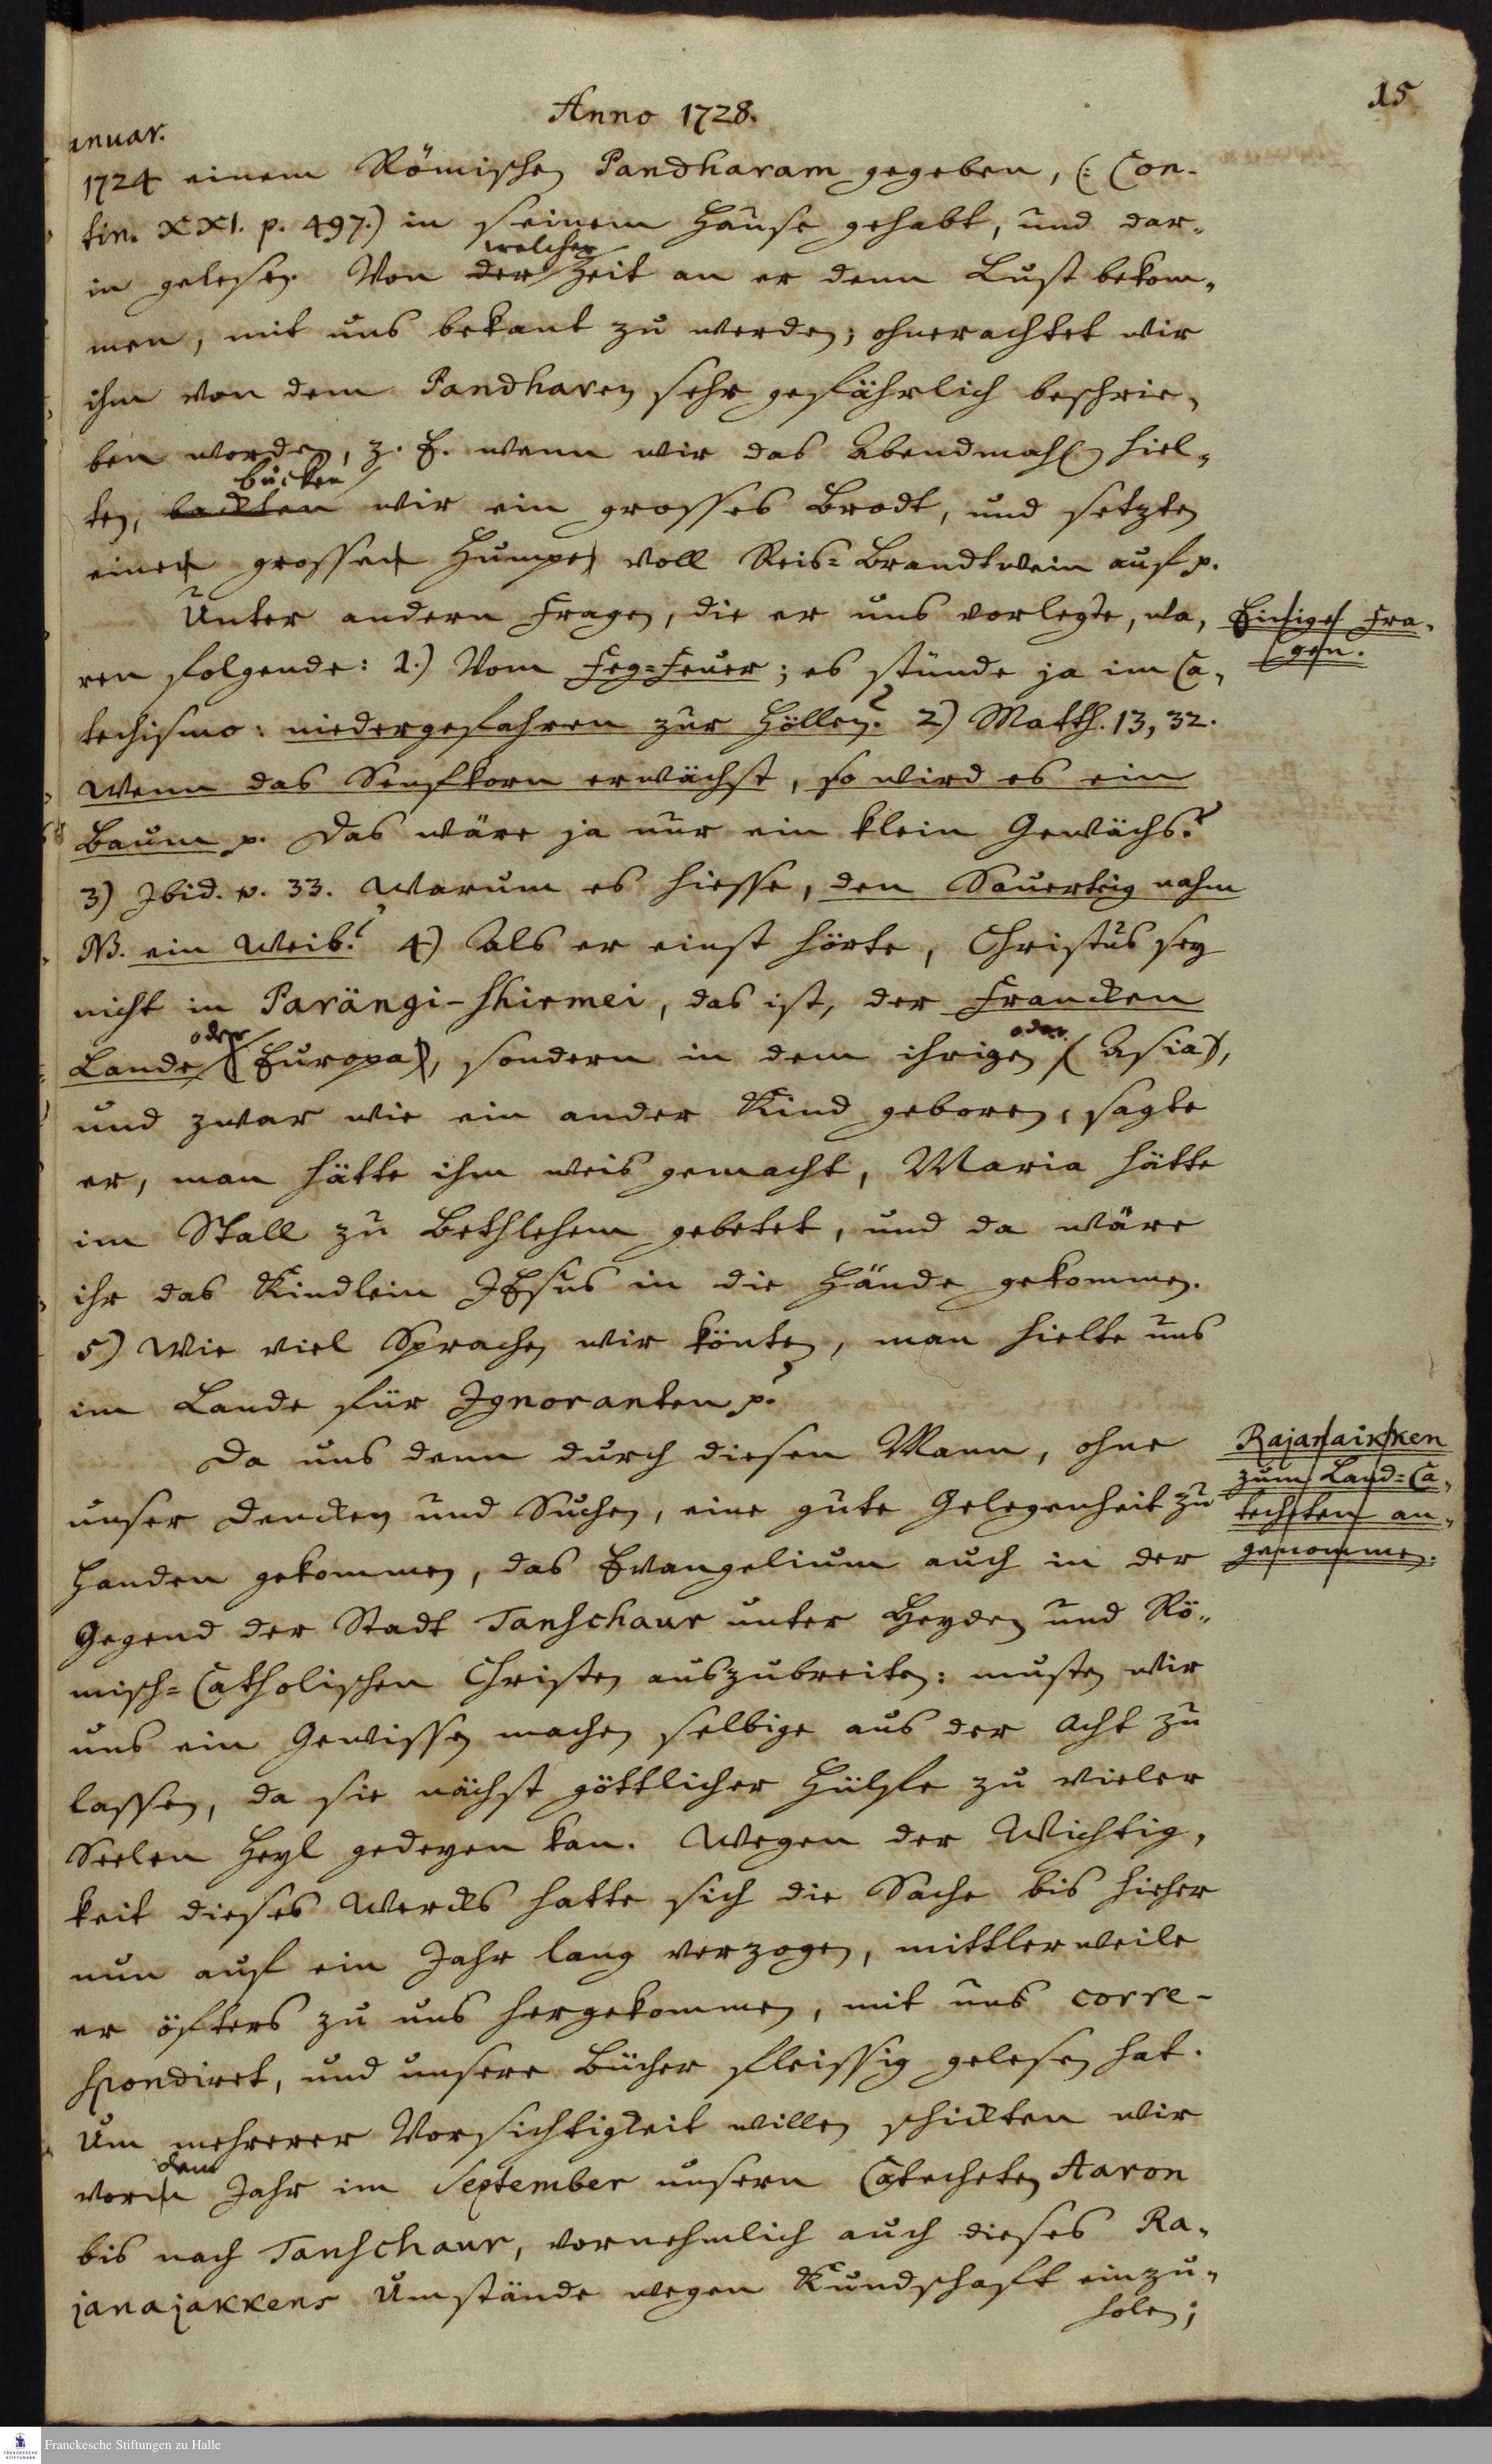 15
Anno 1728.
anuar.
1724 einem Römischen Pandharam gegeben, (: Con-
tin. XXI. p. 497.) in seinem Hause gehabt, und dar-
welcher
in gelesen. Von der Zeit an er denn Lust bekom-
men, mit uns bekant zu werden; ohnerachtet wir
ihm von dem Pandharen sehr gefährlich beschrie-
ben worden, z. E. wenn wir das Abendmahl hiel-
bücken
ten, backten wir ein grosses Brodt, und setzten
einen grossen Humpen voll Reis-Brandtwein auf p.
Unter andern Fragen, die er uns vorlegte, wa-
Einige Fra-
gen.
ren folgende: 1.) Vom Feg-Feuer; es stünde ja im Ca-
techismo: niedergefahren zur Höllen? 2) Matth. 13, 32.
Wenn das Senfkorn erwächst, so wird es ein
Baum p. Das wäre ja nur ein klein Gewächs?
3) Ibid. v. 33. Warum es hiesse, den Sauerteig nahm
NB. ein Weib? 4) Als er einst hörte, Christus sey
nicht in Parängi-Shirmei, das ist, der Francken
oder oder
Lande (Europa), sondern in dem ihrigen (Asia),
und zwar wie ein ander Kind geboren, sagte
er, man hätte ihm weis gemacht, Maria hätte
im Stall zu Bethlehem gebetet, und da wäre
ihr das Kindlein JEsus in die Hände gekommen.
5) Wie viel Sprachen wir könten, man hielte uns
im Lande für Ignoranten p.?
Da uns denn durch diesen Mann, ohne
Rajanaikken
zum Land-Ca-
techeten an-
genommen.
unser Dencken und Suchen, eine gute Gelegenheit zu
Handen gekommen, das Evangelium auch in der
Gegend der Stadt Tanschaur unter Heyden und Rö-
misch-Catholischen Christen auszubreiten: musten wir
uns ein Gewissen machen selbige aus der Acht zu
lassen, da sie nächst göttlicher Hülfe zu vieler
Seelen Heyl gedeyen kan. Wegen der Wichtig-
keit dieses Wercks hatte sich die Sache bis hieher
nun auf ein Jahr lang verzogen, mittlerweile
er öfters zu uns hergekommen, mit uns corre-
spondiret, und unsere Bücher fleissig gelesen hat.
Um mehrerer Vorsichtigkeit willen schickten wir
dem
vorin Jahr im September unsern Catecheten Aaron
bis nach Tanschaur, vornehmlich auch dieses Ra-
janajakkens Umstände wegen Kundschaft einzu-
holen;
Franckesche Stiftungen zu Halle